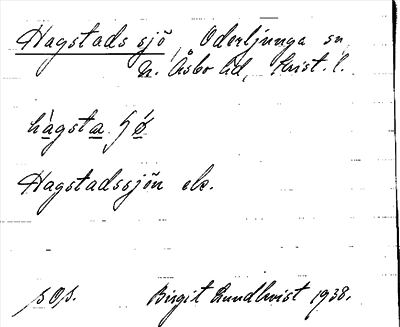 Hagstads sjö, Oderljunga sn
N. Åsbo hd, Krist. l.
Hagstadssjön ek.
sOs. Birgit Lundkvist 1938.